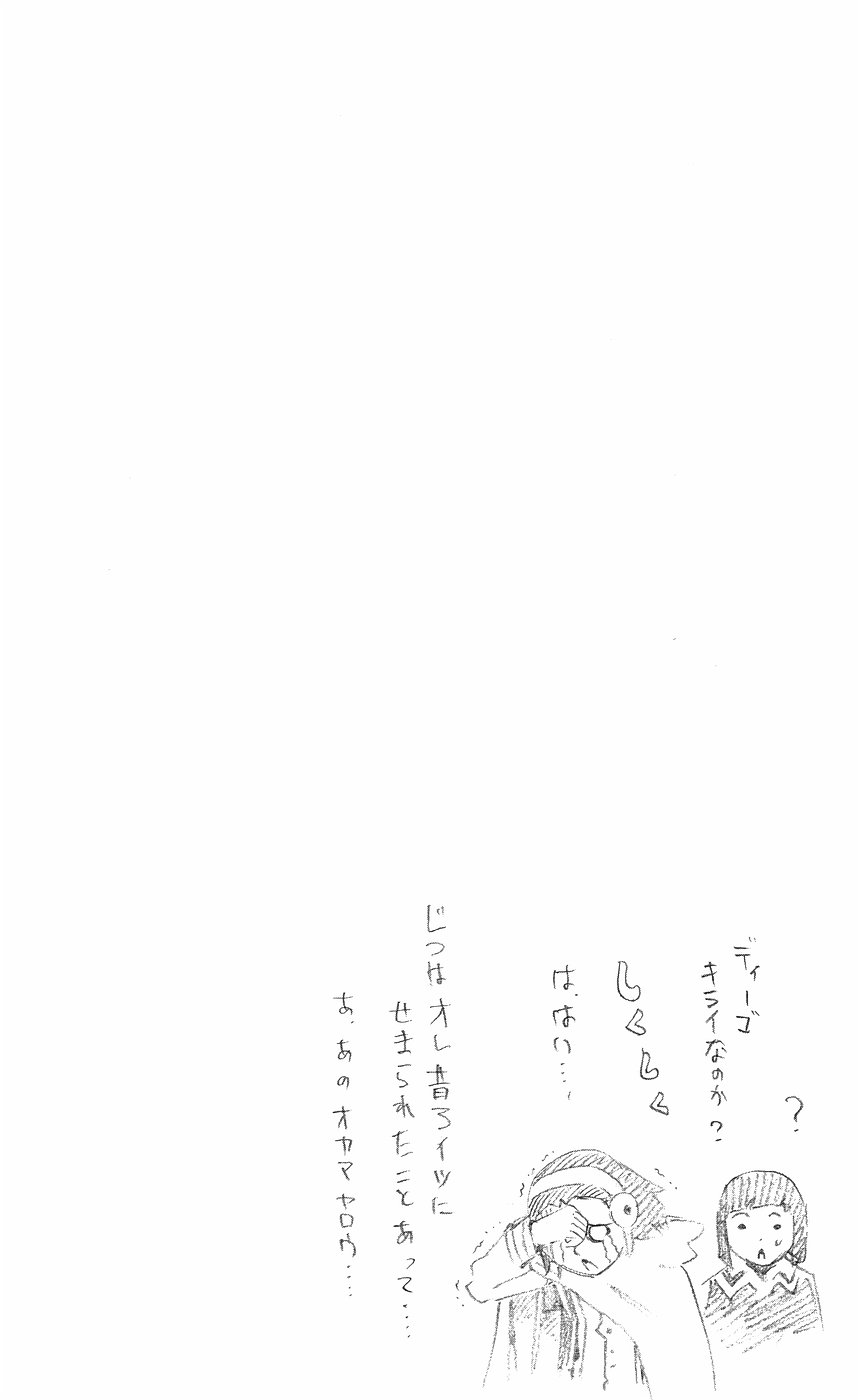 ?
ディーゴ
キライなのか?
しくしく
は、はい…。
じつはオレ昔ろイツに
せまられたことあって…。
あ、あのオカマヤロウ…